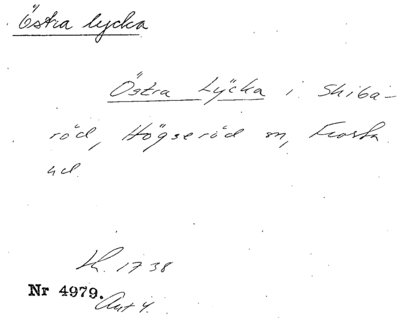 Östra lycka
Östra Lÿcka i Skiba-
röd, Högseröd sn, Frosta
hd.
Lk. 1738
Nr 4979.
Akt 4.